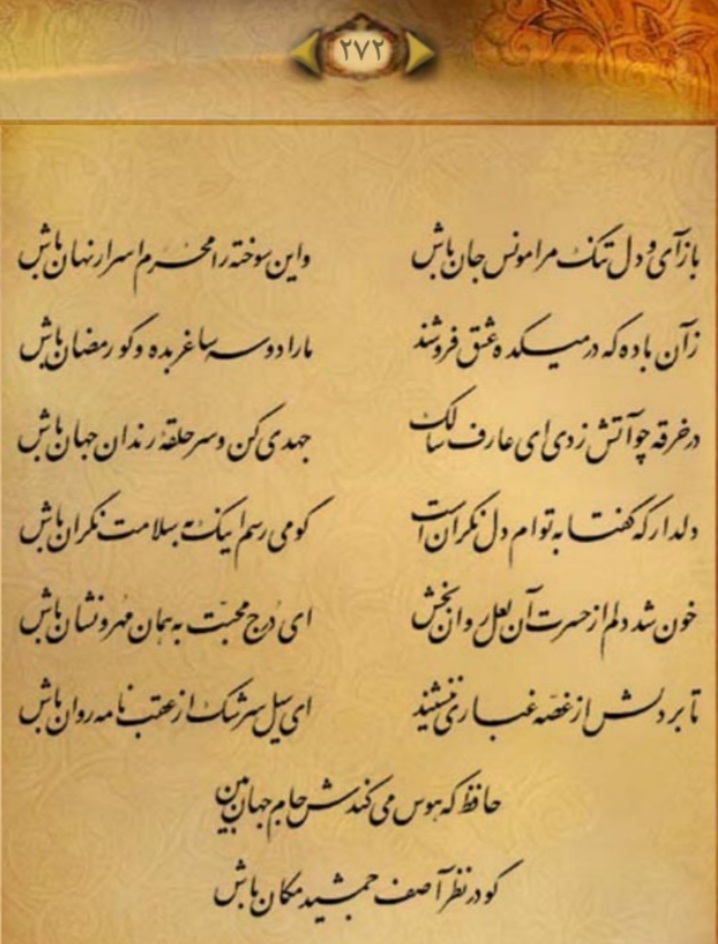 ۲۷۲
بازآی و دل تنگ مرا مونس جان باش
واین سوخته را محرم اسرار نهان باش
زآن باده که در میکده عشق فروشند
ما را دو سه ساغر بده و گو رمضان باش
در خرقه چو آتش زدی ای عارف سالک
جهدی کن و سر حلقهٔ رندان جهان باش
دلدار که گفتا به توام دل نگران است
گو می رسم اینک به سلامت نگران باش
خون شد دلم از حسرت آن لعل روان بخش
ای دُرج محبّت به همان مُهر و نشان باش
تا بر دلش از غصّه غباری ننشیند
ای سیل سرشک از عقب نامه روان باش
حافظ که هوس می کندش جام جهان بین
گو در نظر آصف جمشید مکان باش